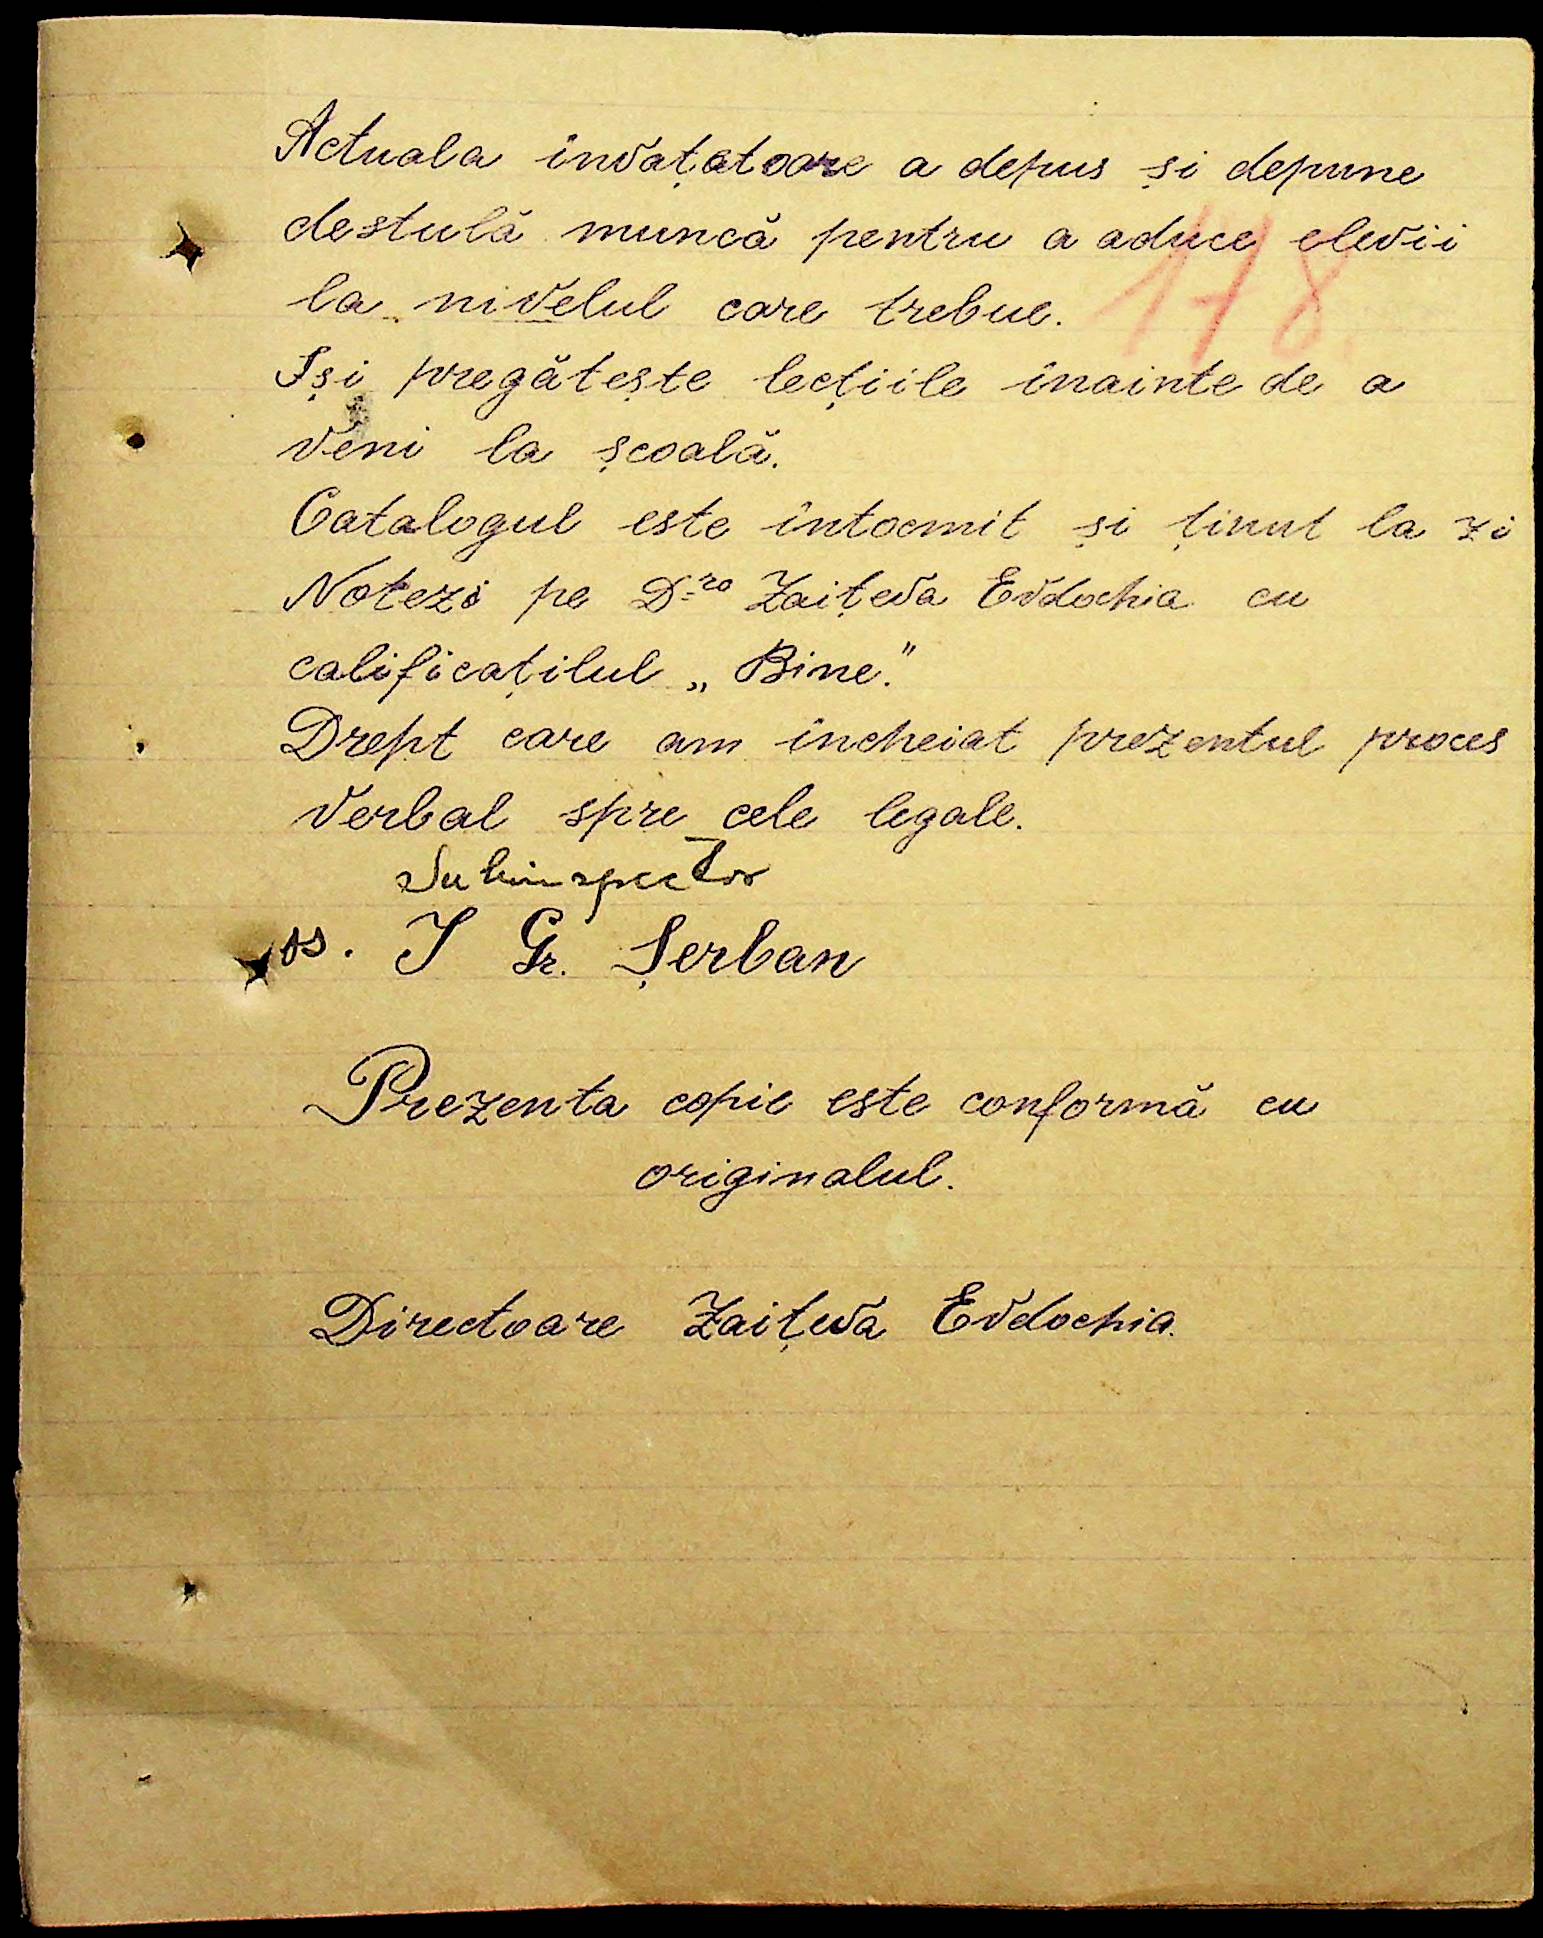 Actuala învațatoare a depus și depune
destulă muncă pentru a aduce elevii
la nivelul care trebue.
178
Iși pregătește lecțiile înainte de a
veni la școală.
Catalogul este întocmit și ținut la zi
Notezi pe D-ra Zaițeva Evdochia cu
calificațilul „Bine."
Drept care am încheiat prezentul proces
verbal spre cele legale.
Subinspector
ss. I Gr. Șerban
Prezenta copie este conformă cu
originalul.
Directoare Zaițeva Evdochia.